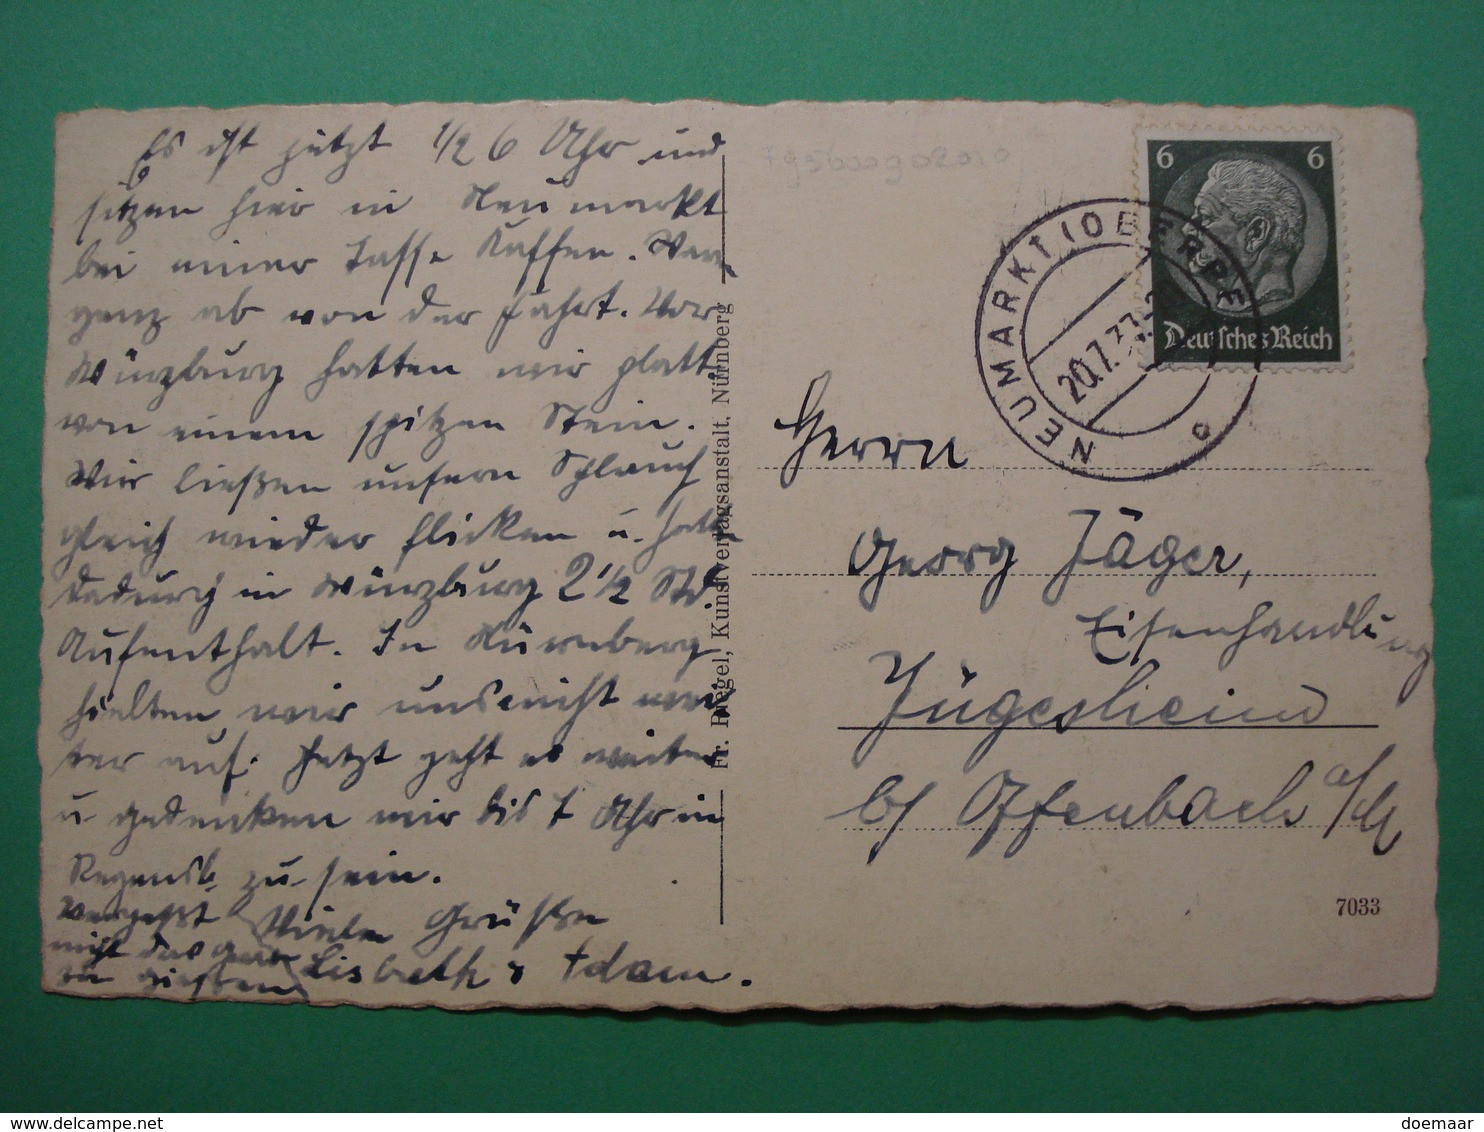 Es ist jetzt 1/2 6 Uhr und
sitzen hier in Neumarkt
bei einer Tasse Kaffee.
ab von der Fahrt. Vor
Würzburg hatten wir platt
von einem spitzen Stein.
Wir ließen unsern Schlauch
gleich wieder flicken u. hatt
dadurch in Würzburg 2 1/2 Std
Aufenthalt. In Nürnberg
hielten wir uns nicht wei
ter auf. Jetzt geht es weiter
u gedenken wir bis 7 Uhr in
Regensb. zu sein.
Vergesst
nicht das
Viele Grüße
Lisbeth & Adam.
Fr. Riegel, Kunstverlagsanstalt, Nürnberg
6 6
Deutsches Reich
NEUMARKT (OBERPF
20.7.37
Herrn
Georg Jäger,
Eisenhandlung
Jügesheim
b/ Offenbach a/M
7033
doemaar